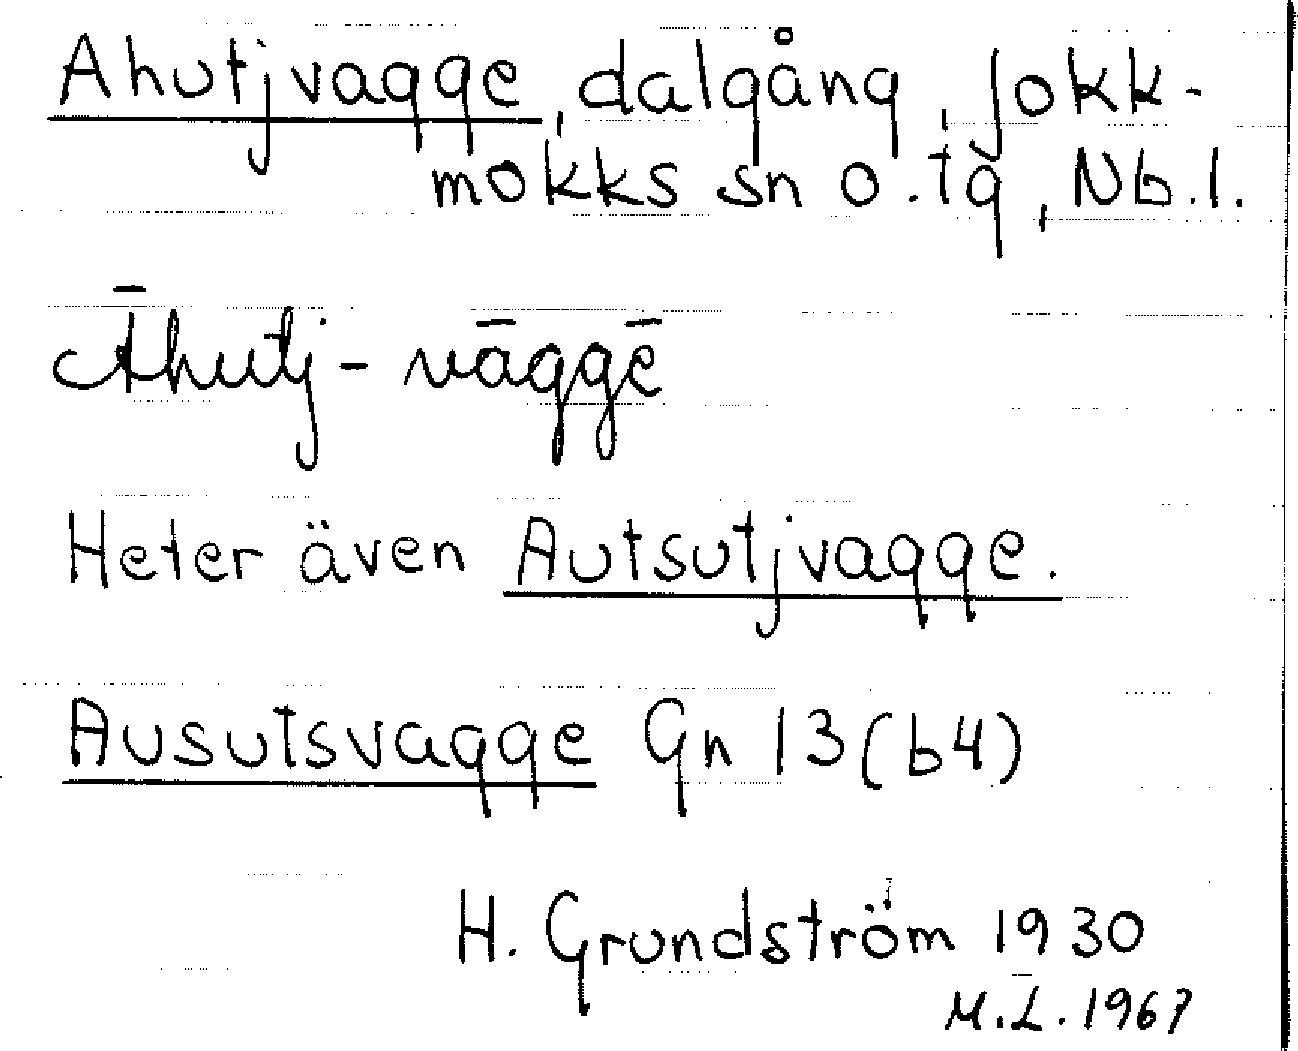 Ahutjvagge, dalgång, Jokk-
mokks sn o. tg, Nb. l.
Āhutj-vāggē
Heter även Autsutjvagge.
Ausutsvagge Gn 13 (b4)
H. Grundström 1930
M.L. 1967